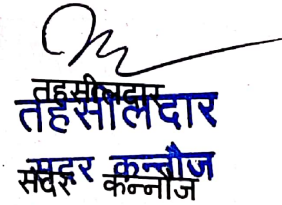 तहसीलदार
तहसीलदार
सदर कन्नौज
सदर कन्नौज